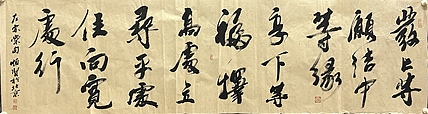 發上等
願結中
等緣
享下等
福擇
高處立
尋平處
住向寬
處行
左宗棠句